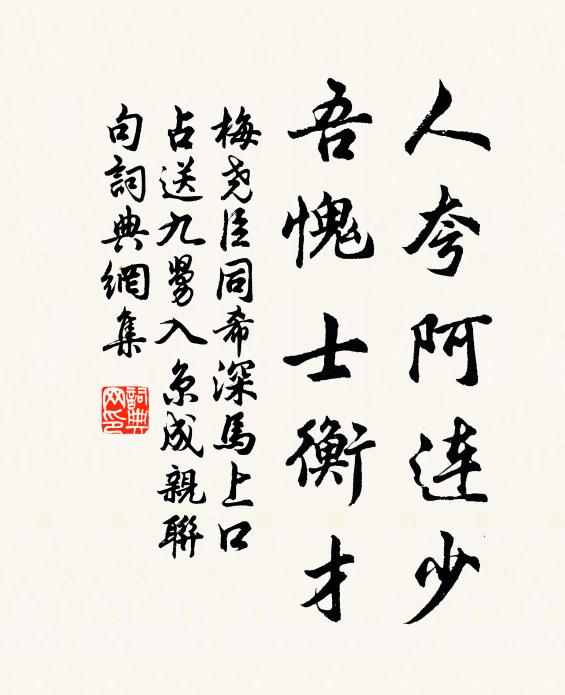 人夸阿连少
吾愧士衡才
梅尧臣同希深馬上口
占送九舅入京成親聯
句詞典網集
詞典网印